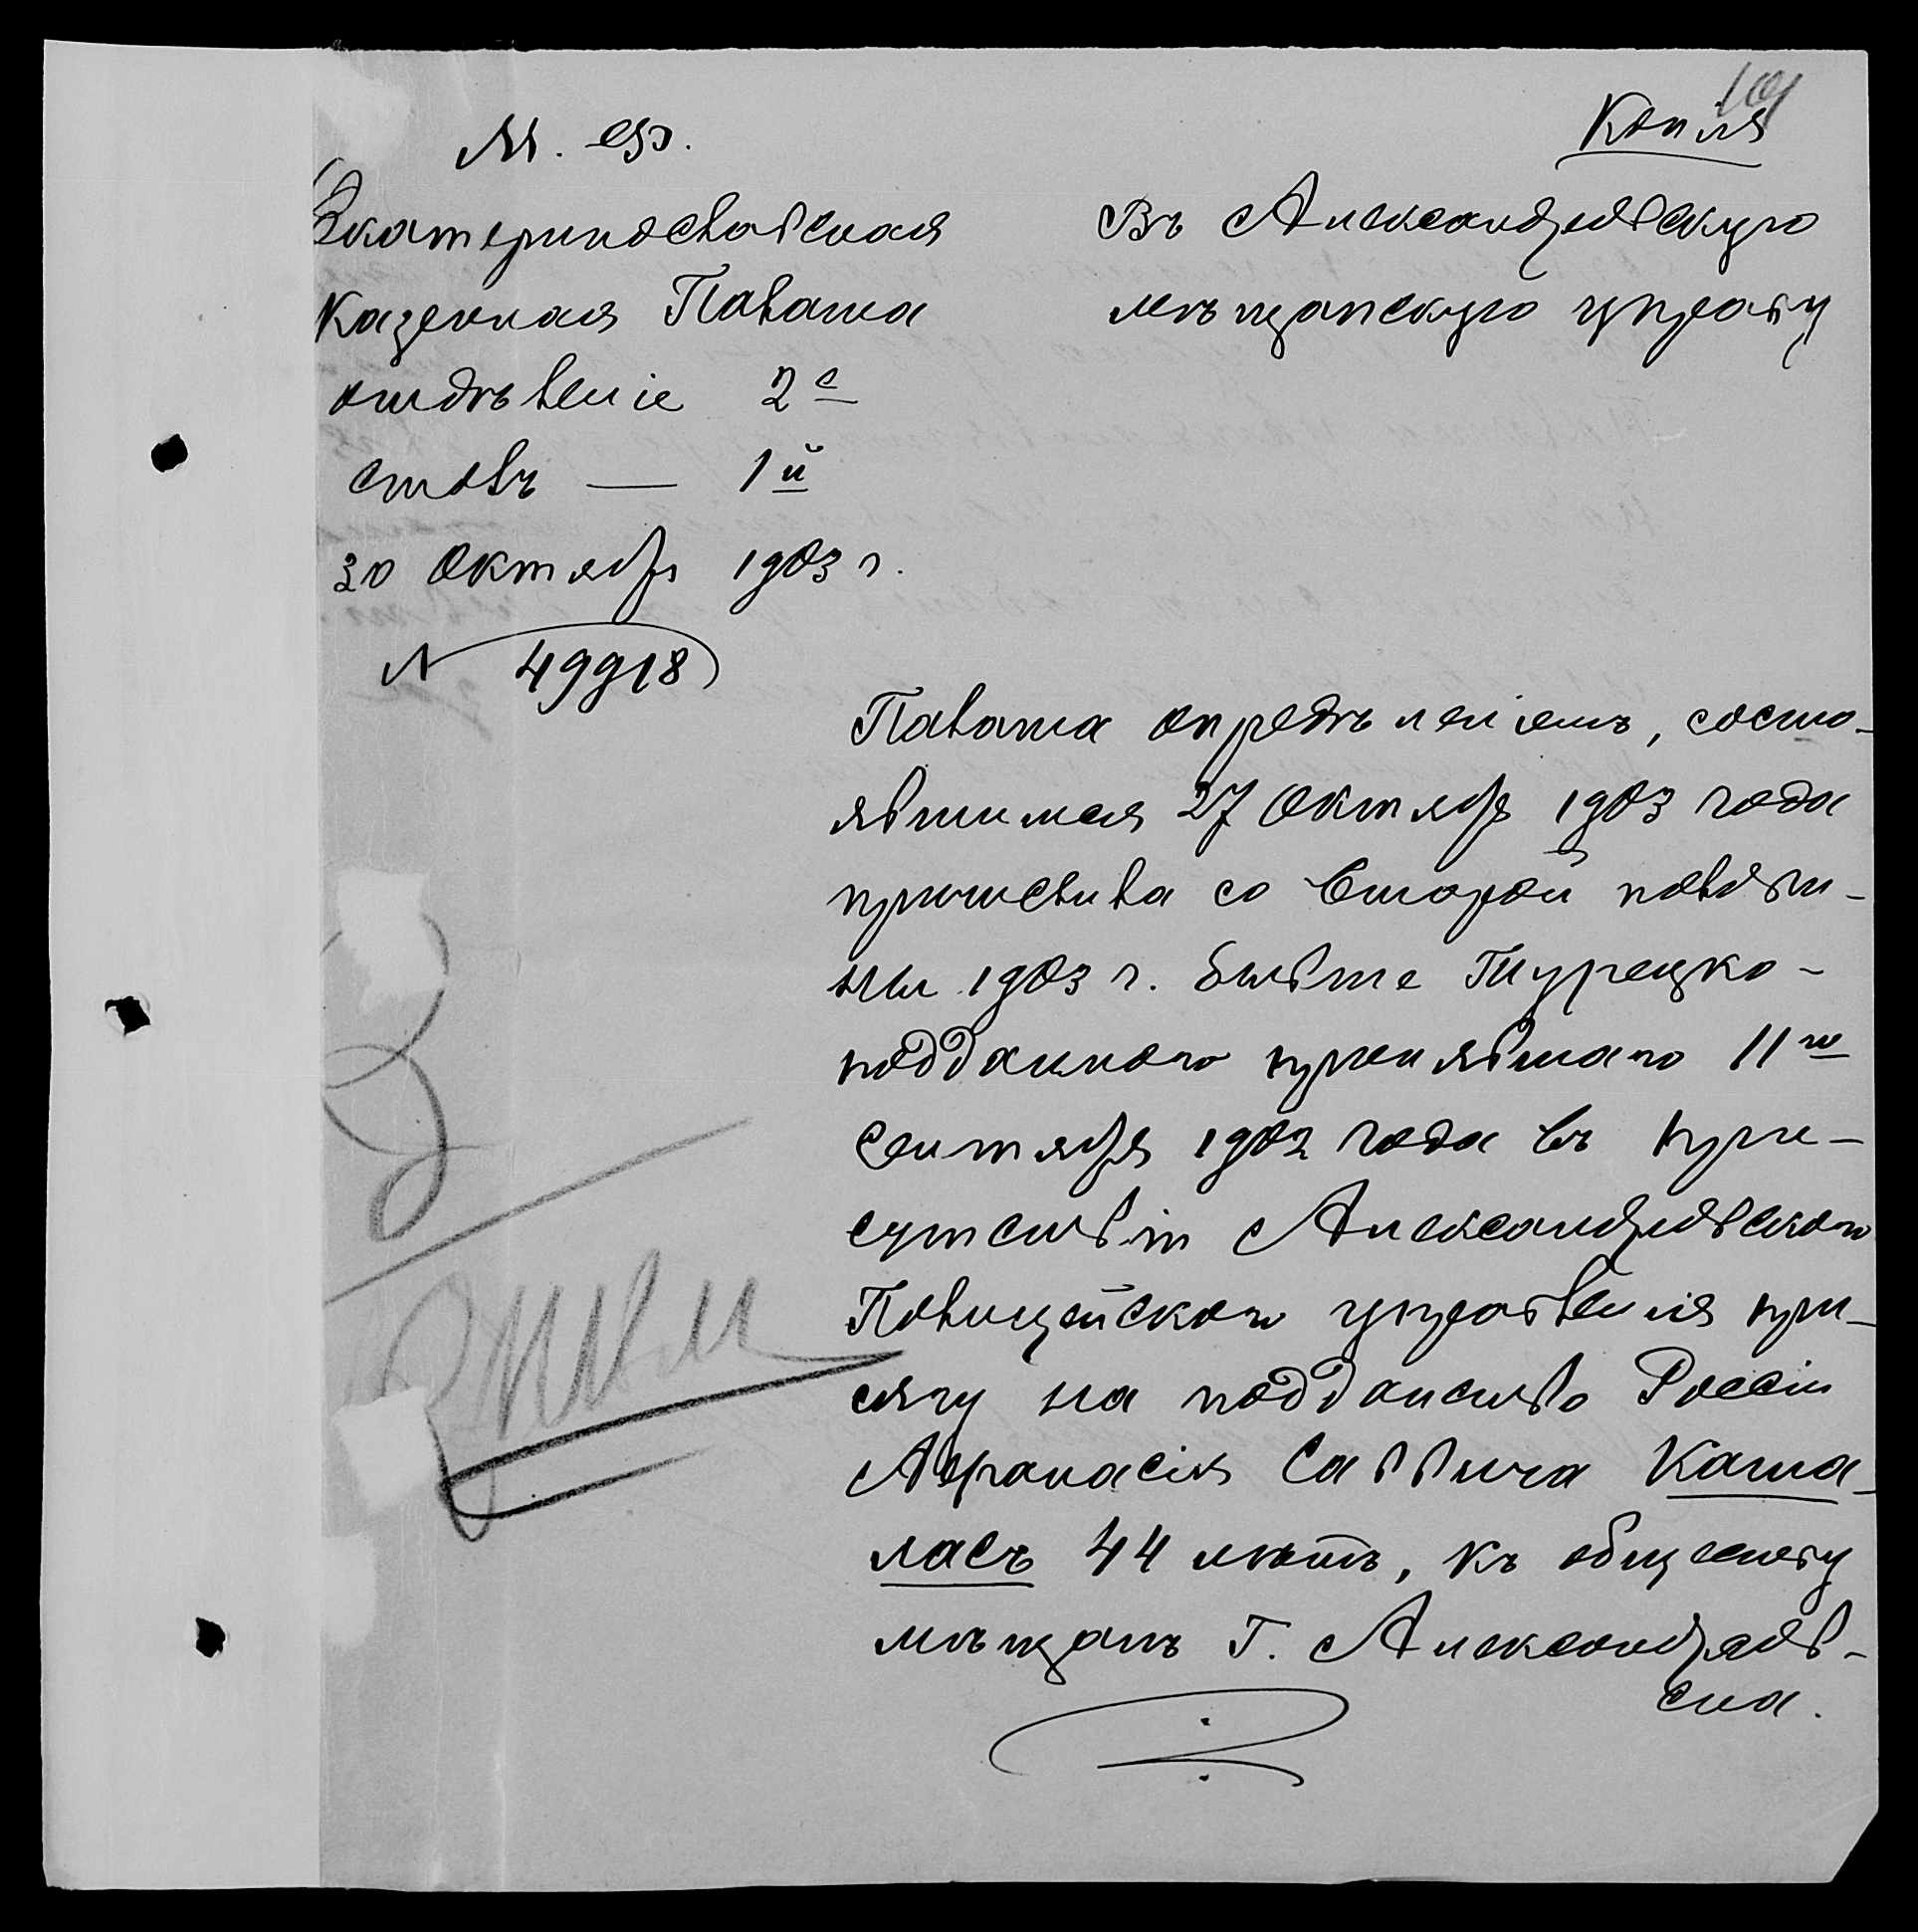 Копія
М. Ф.
Екатеринославская
Казенная Палата
отдѣленіе 2е
столъ — 1й
30 Октября 1903 г.
№ 49918
Въ Александровскую
мѣщанскую управу
Палата опредѣленіемъ, состо-
явшимся 27 Октября 1903 года
причислила со второй полови-
ны 1903 г. бывше Турецко-
подданного принявшаго 11го
Сентября 1902 года въ при-
сутствіи Александровского
Полицейского управленія при-
сягу на подданство Россіи
Афанасія Саввича Каша-
ласъ 44 лѣтъ, къ обществу
мѣщанъ г. Александров-
ска.